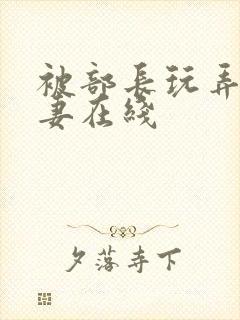 被部长玩弄
妻在线
夕落寺下